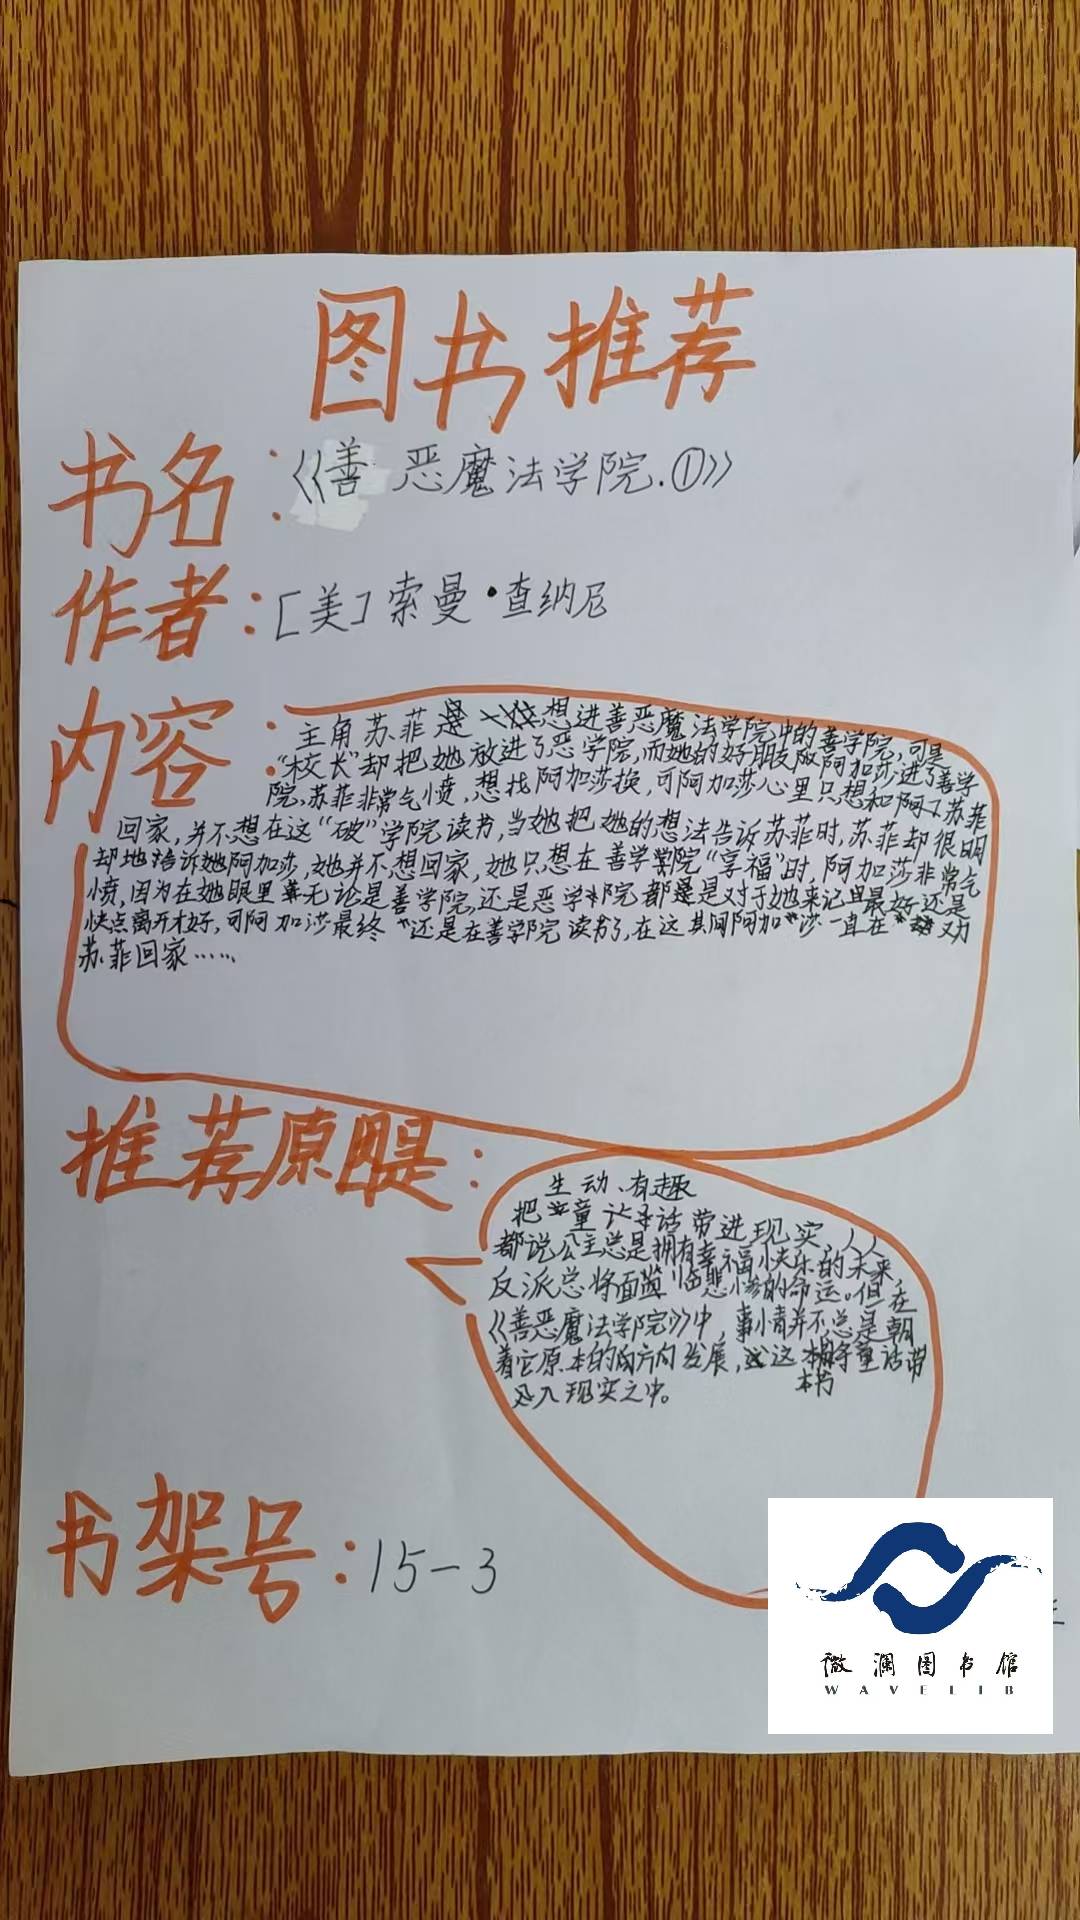 图书推荐
书名：《善恶魔法学院.①》
作者：[美]索曼·查纳尼
内容：
主角苏菲是想进善恶魔法学院中的善学院，可是
“校长”却把她放进了恶学院，而她的好朋友阿加莎进了善学
院，苏菲非常气愤，想找阿加莎换，可阿加莎心里只想和苏菲
回家，并不想在这“破”学院读书，当她把她的想法告诉苏菲时，苏菲却很明
却地告诉她阿加莎，她并不想回家，她只想在善学院“享福”时，阿加莎非常气
愤，因为在她眼里无论是善学院，还是恶学院都是对于她来记且最好还是
快点离开才好，可阿加莎最终还是在善学院读书了，在这其间阿加莎一直在劝
苏菲回家……
推荐原因：
生动、有趣
把童话带进现实，人人
都说公主总是拥有幸福快乐的未来，
反派总将面临悲惨的命运。但在
《善恶魔法学院》中，事情并不总是朝
着它原本的方向发展，这本书将童话带
入现实之中。
书架号：15-3
微澜图书馆
WAVELIB